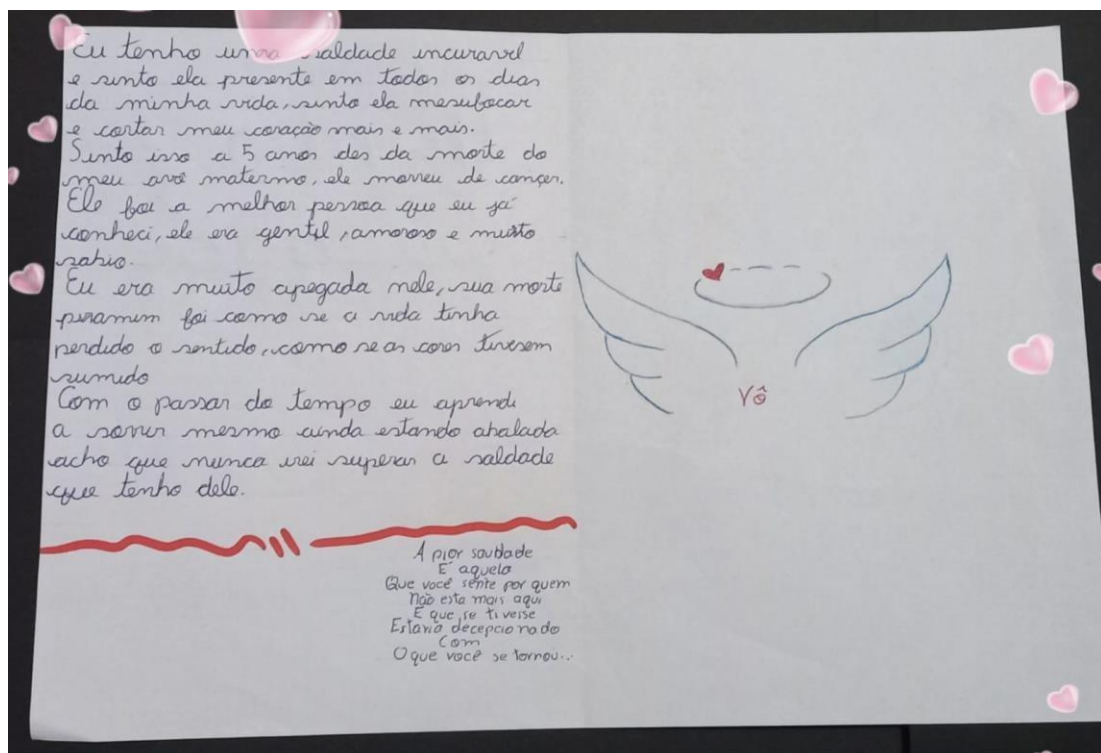 Eu tenho uma saldade incuravel
e sinto ela presente em todos os dias
da minha vida, sinto ela mesufocar
e cortar meu coração mais e mais.
Sinto isso a 5 anos des da morte do
meu avô matermo, ele morreu de cançer.
Ele foi a melhor pessoa que eu já
conheci, ele era gentil, amoroso e muito
sabio.
Eu era muito apegada nele, sua morte
puramim foi como se a vida tinha
perdido o sentido, como se as cores tivesem
sumido
Com o passar do tempo eu aprendi
a sorrir mesmo ainda estando abalada
acho que nunca irei superar a saldade
que tenho dele.
A pior saudade
É aquela
Que você sente por quem
Não esta mais aqui
E que se tivesse
Estaria decepcionado
Com
O que você se tornou...
Vô